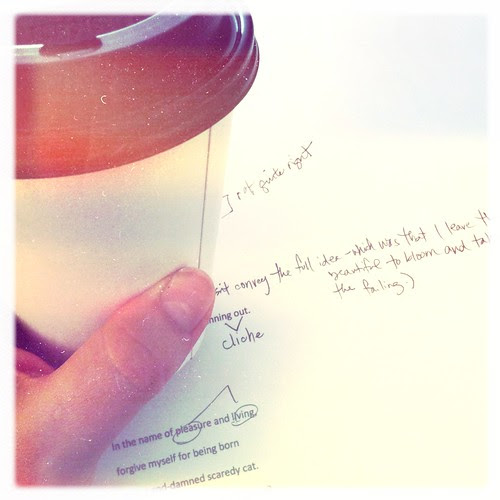 ] not quite right
sn't convey the full idea - which was that I leave th
beautiful to bloom and ta
the falling)
nning out.
cliche
In the name of pleasure and living,
forgive myself for being born
d-damned scaredy cat.